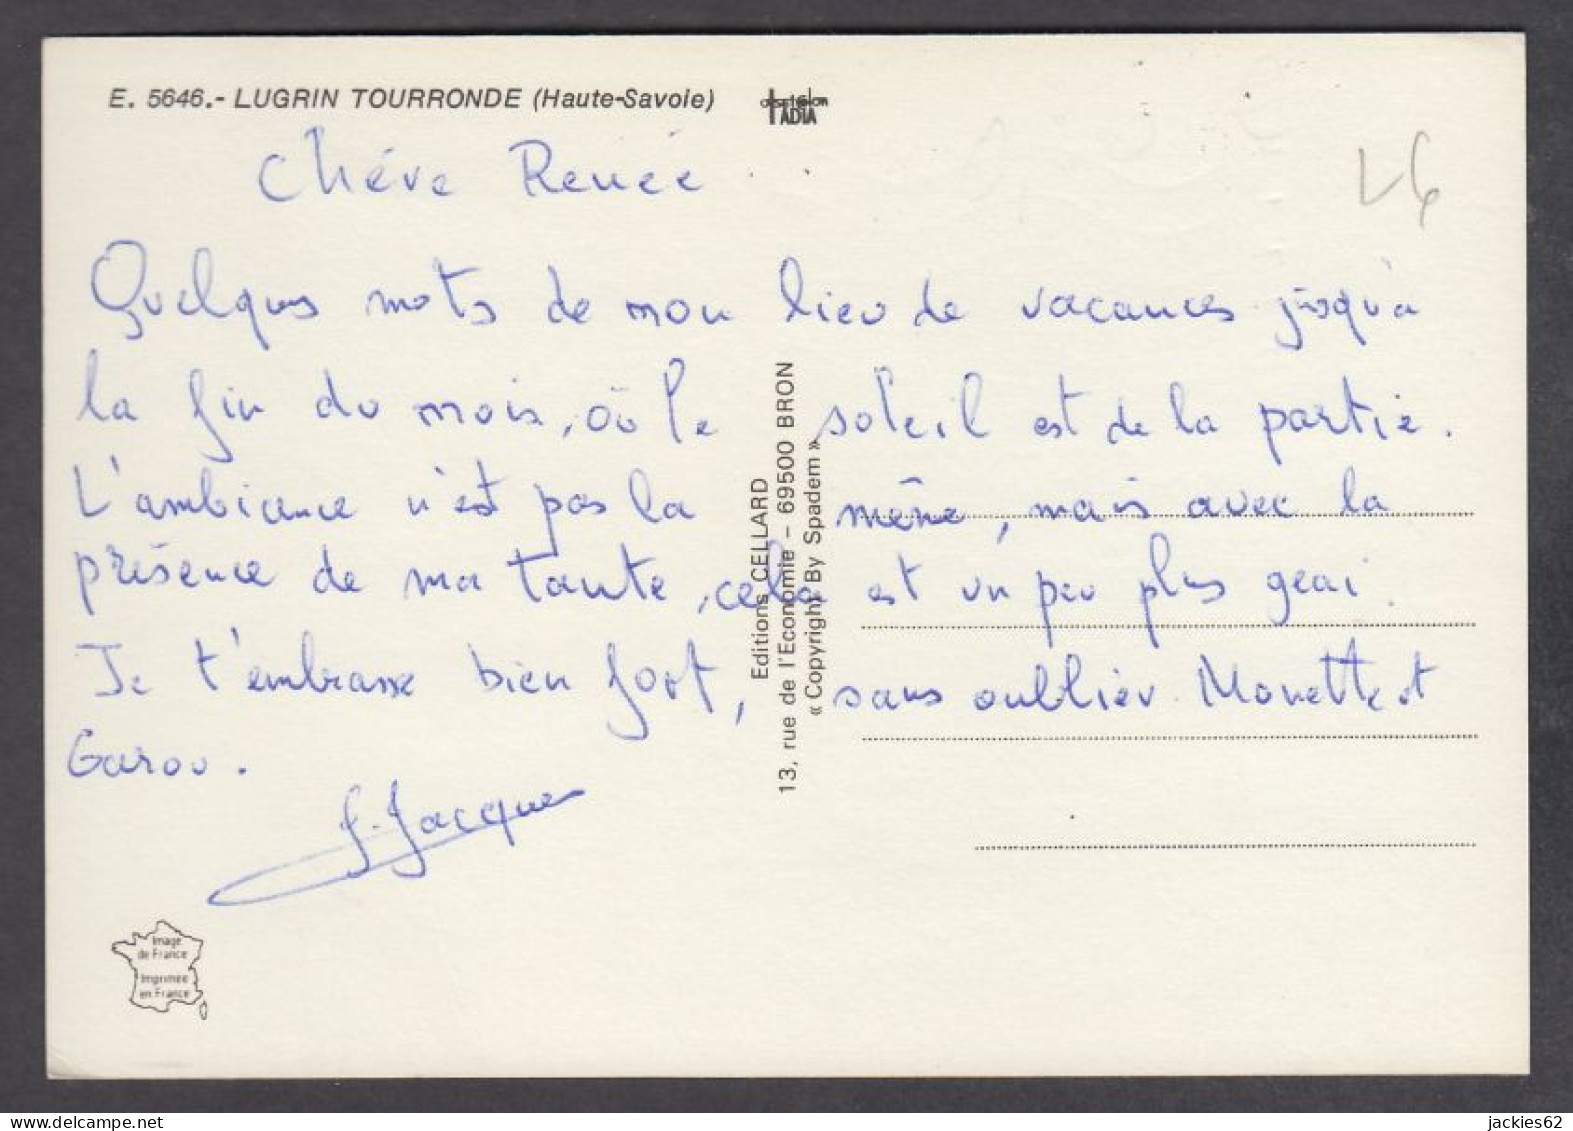 E. 5646.- LUGRIN TOURRONDE (Haute-Savoie)
TADIA
Chére Renée
V6
Quelques mots de mon lieu de vacances jusqu'à
la fin du mois, où le soleil est de la partie.
L'ambiance n'est pas la même, mais avec la
présence de ma tante, cela est un peu plus geai.
Je t'embrasse bien fort, sans oublier Monette et
Garou.
J. Jacques
Editions CELLARD
13, rue de l'Economie - 69500 BRON
« Copyright By Spadem »
Image
de France
Imprimée
en France
jackies62